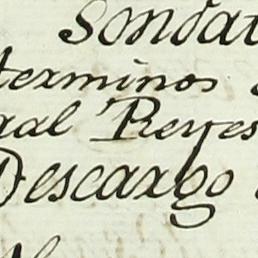 Sondat
terminos
gal Reyes
Descargo